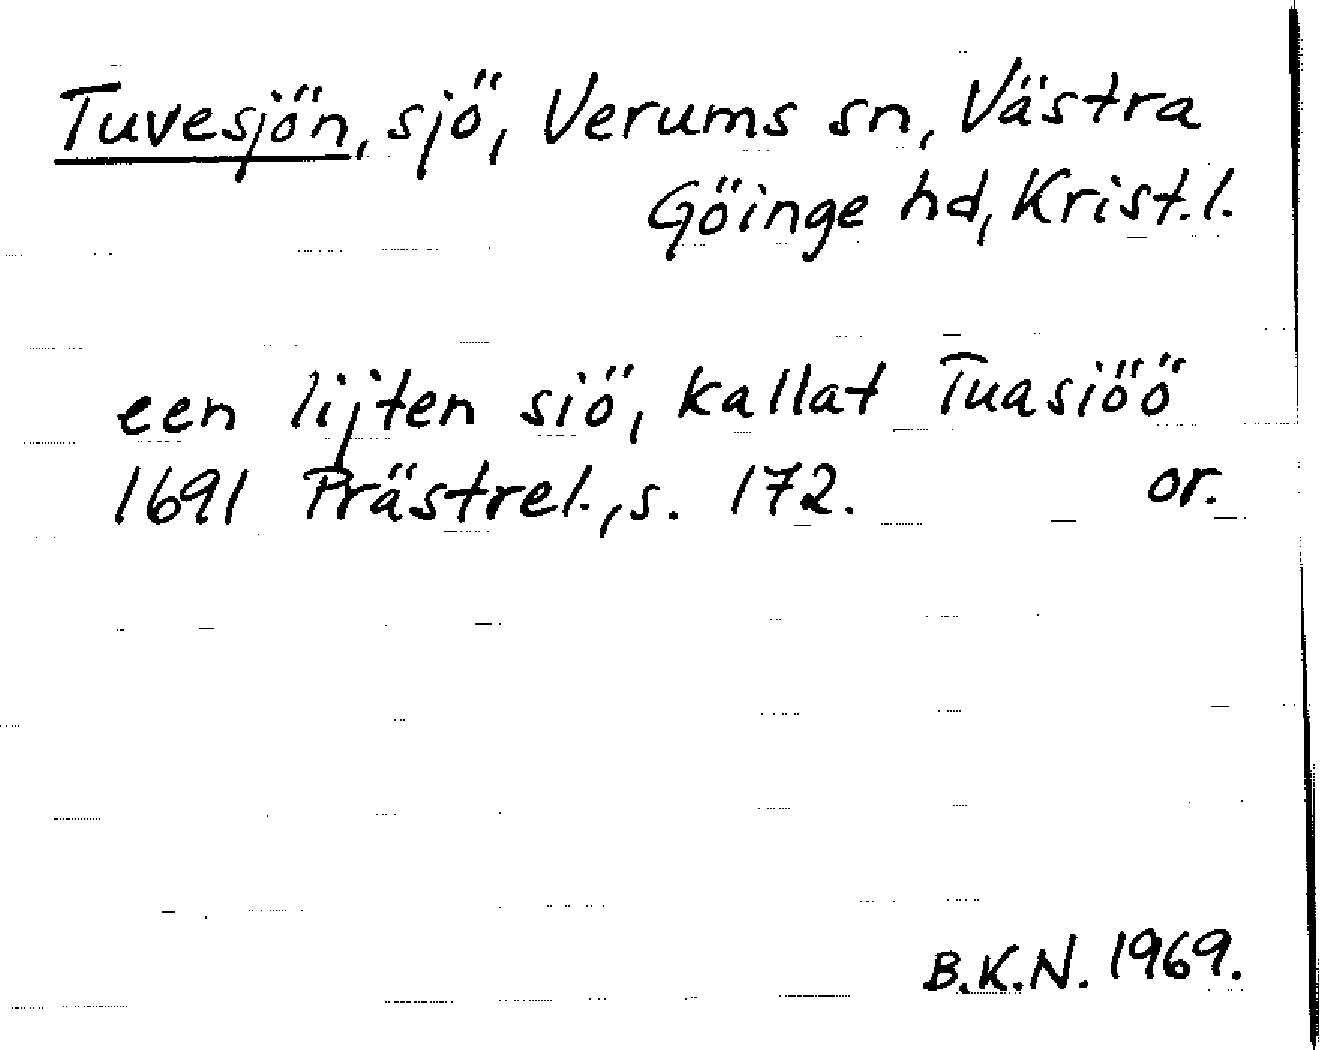 Tuvesjön, sjö, Verums sn, Västra
Göinge hd, Krist.l.
een lijten siö, kallat Tuasiöö
1691 Prästrel., s. 172. or.
B.K.N. 1969.